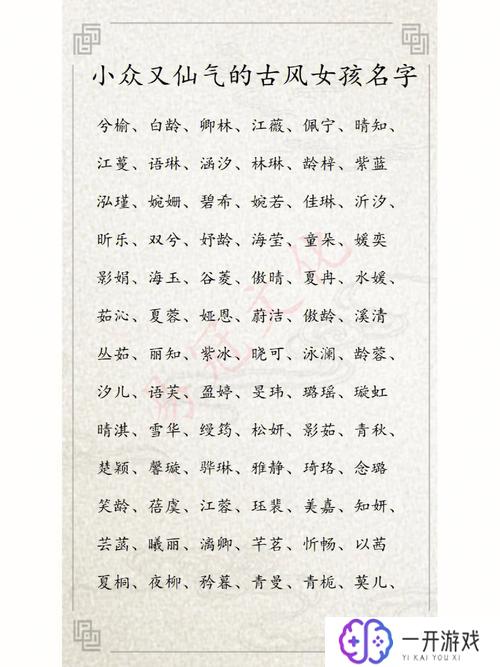 小众又仙气的古风女孩名字
兮榆、白龄、卿林、江薇、佩宁、晴知、
江蔓、语琳、涵汐、林琳、龄梓、紫蓝
泓瑾、婉姗、碧希、婉若、佳琳、沂汐、
昕乐、双兮、妤龄、海莹、童朵、媛奕
影娟、海玉、谷菱、傲晴、夏冉、水媛、
茹沁、夏蓉、娅恩、蔚洁、傲龄、溪清
丛茹、丽知、紫冰、晓可、泳澜、龄蓉、
汐儿、语芙、盈婷、旻玮、璐瑶、璇虹
晴淇、雪华、绶筠、松妍、影茹、青秋、
楚颖、馨璇、骅琳、雅静、琦珞、念璐
笑龄、蓓虞、江蓉、珏裴、美嘉、知妍、
芸菡、曦丽、漓卿、芊茗、忻畅、以茜
夏桐、夜柳、矜暮、青曼、青栀、莫儿、
一开游戏
YI KAI YOU XI